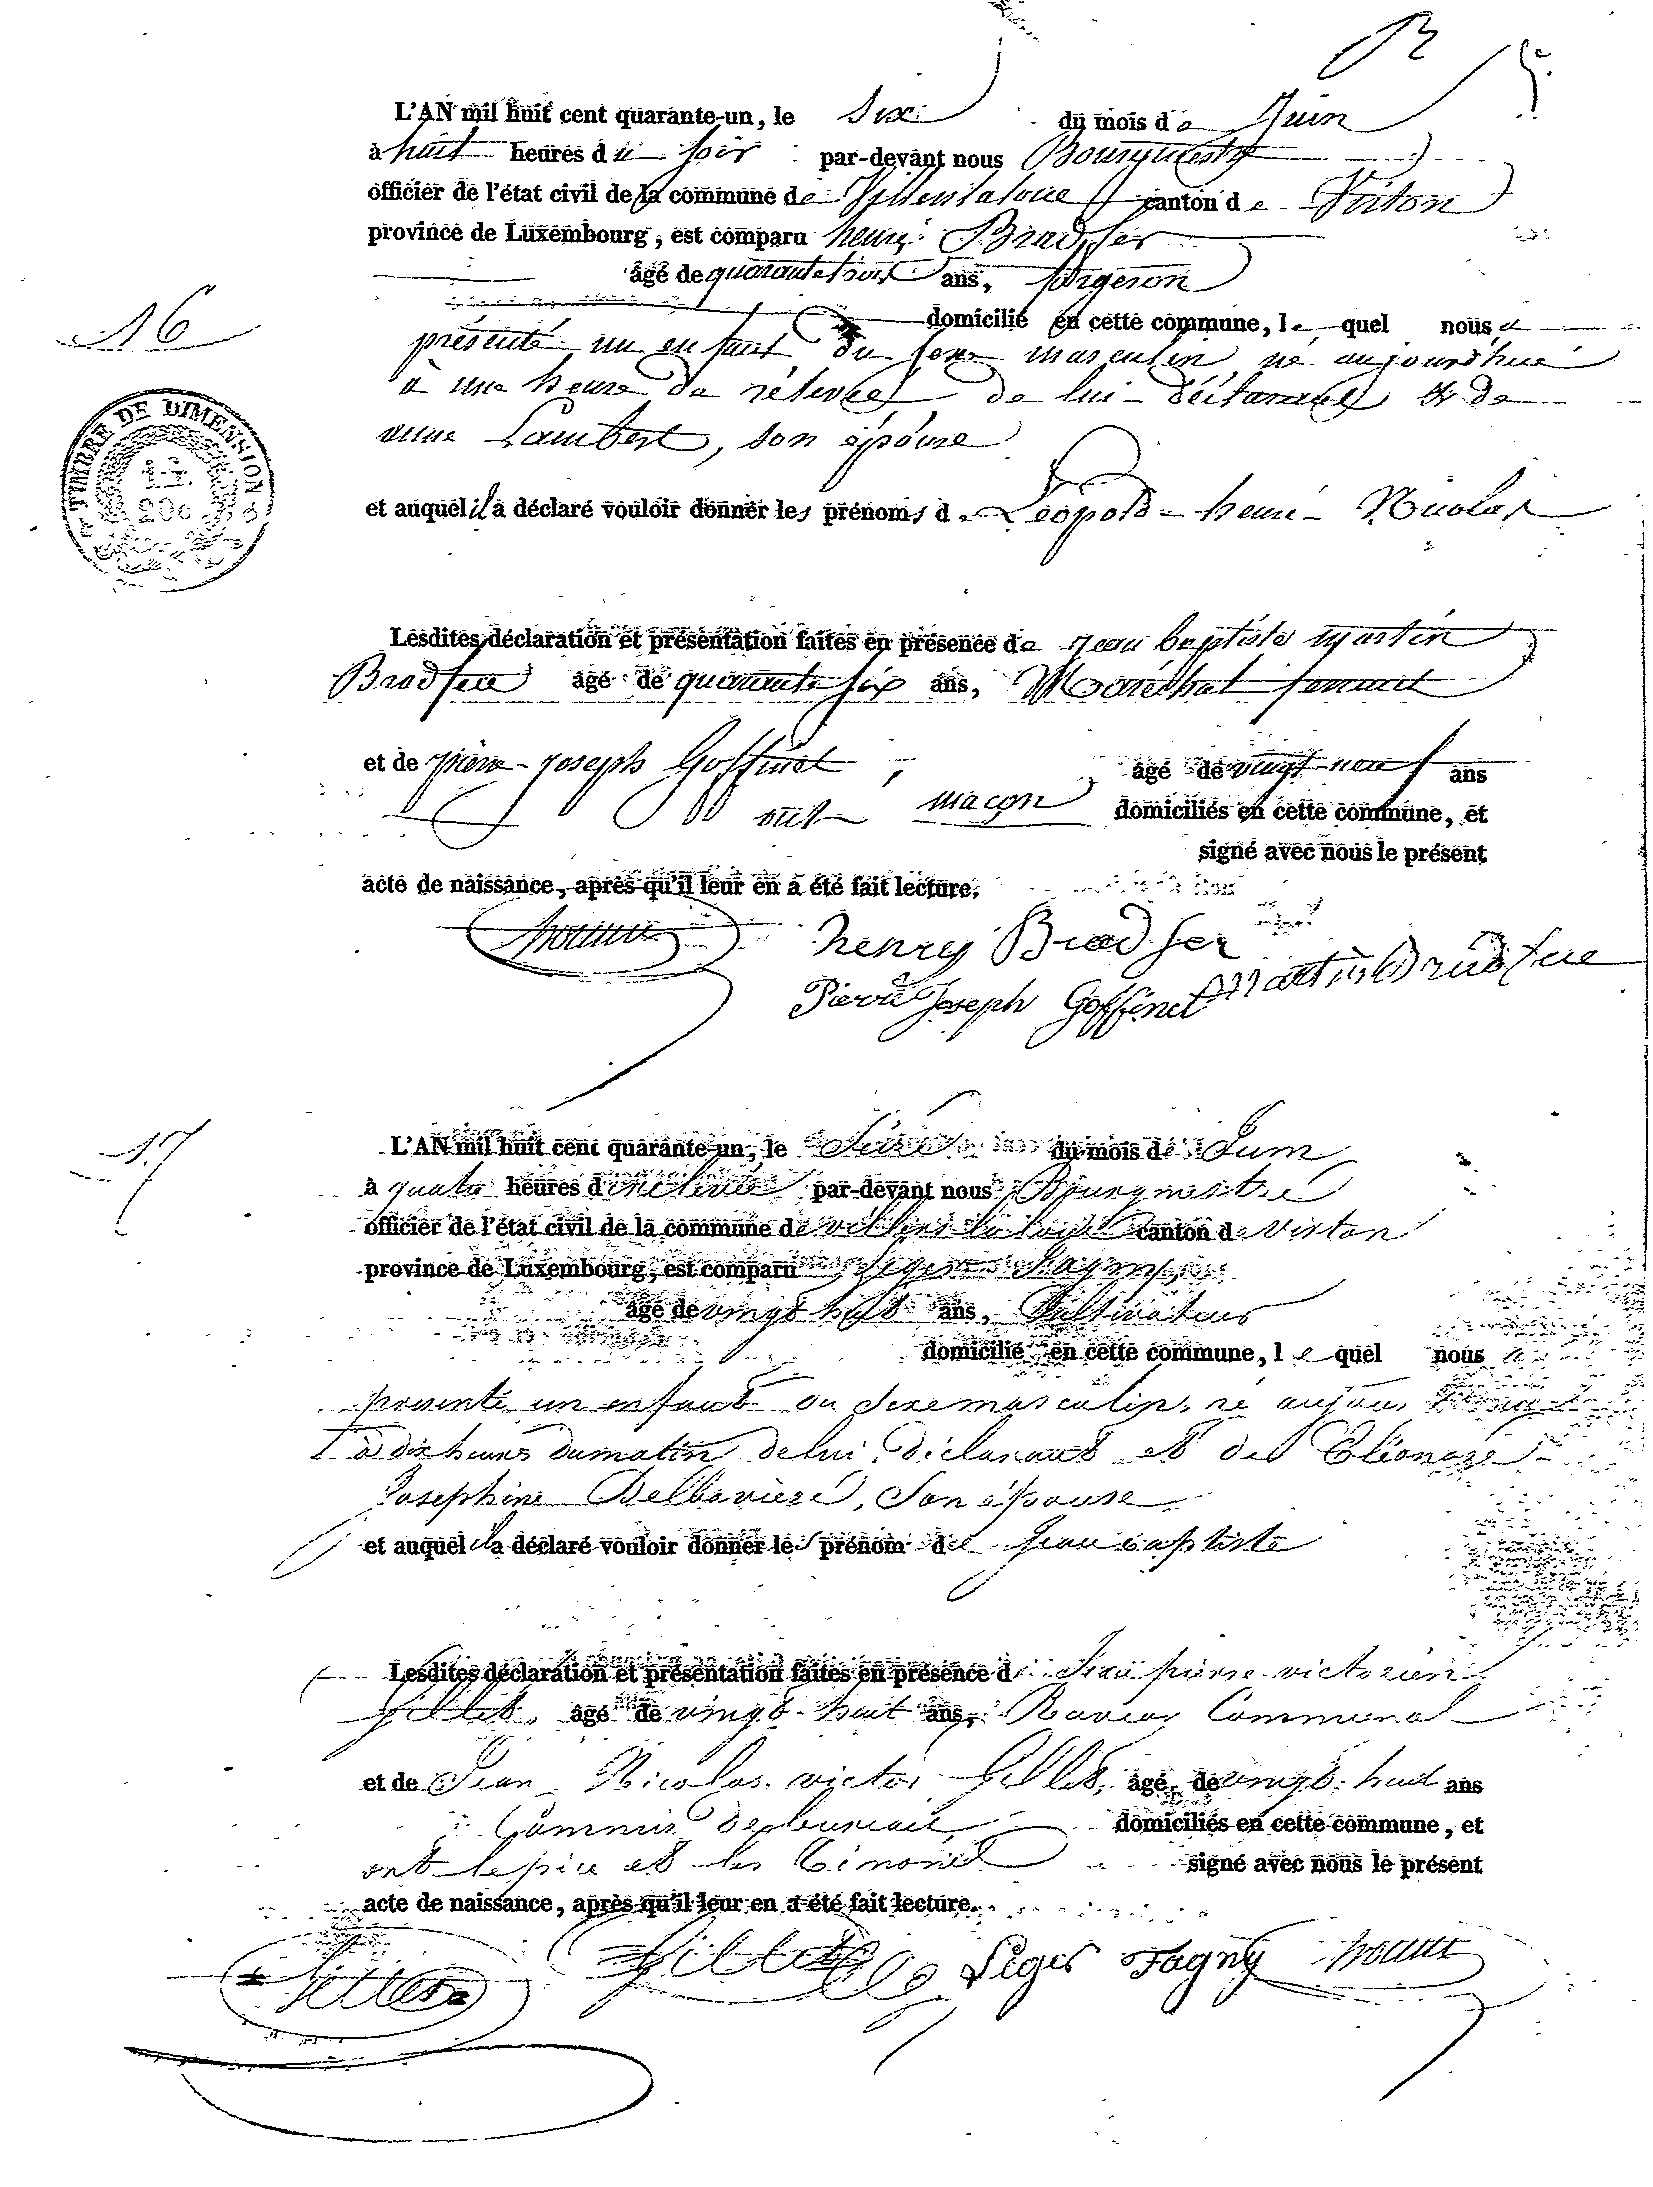 L'AN mil huit cent quarante-un, le six du mois de Juin
à huit heures du soir par-devant nous Bourgmestre
officier de l'état civil de la commune de Villers la loue canton de Virton
province de Luxembourg, est comparu henri Bradfer
âgé de quarante trois ans, forgeron
16
domicilié en cette commune, le quel nous a
présenté un enfant du sexe masculin, né aujourdhui
à une heure de rélevée de lui déclarant & de
Lambert, son épouse
TIMBRE DE DIMENSION
et auquel il a déclaré vouloir donner les prénoms de Léopold - henri - Nicolas
Lesdites déclaration et présentation faites en présence de Jean baptiste Martin
Bradfer âgé de quarante six ans, Maréchal ferrant
et de pierre - joseph Goffinet, âgé de vingt neuf ans
maçon domiciliés en cette commune, et
ont signé avec nous le présent
acte de naissance, après qu'il leur en a été fait lecture.
henry Bradfer
Martin Bradfer
Pierre Joseph Goffinet
17
L'AN mil huit cent quarante-un, le Seize du mois de Juin
à quatre heures de rélevée par-devant nous Bourgmestre
officier de l'état civil de la commune de villers la loue canton de virton
province de Luxembourg, est comparu Léger Fagny,
âgé de vingt huit ans, Cultivateur
domicilié en cette commune, le quel nous a
présenté un enfant du sexe masculin, né aujour
à dix heures du matin de lui déclarant et de Eléonore
Josephine son épouse
et auquel il a déclaré vouloir donner les prénom de Jean baptiste
Lesdites déclaration et présentation faites en présence de Jean pierre victorien
Gillet, âgé de vingt huit ans, Communal
et de Jean Nicolas victor Gillet, âgé de vingt huit ans
Commis de bureau domiciliés en cette commune, et
ont le père et les témoins signé avec nous le présent
acte de naissance, après qu'il leur en a été fait lecture.
Gillet Léger Fagny